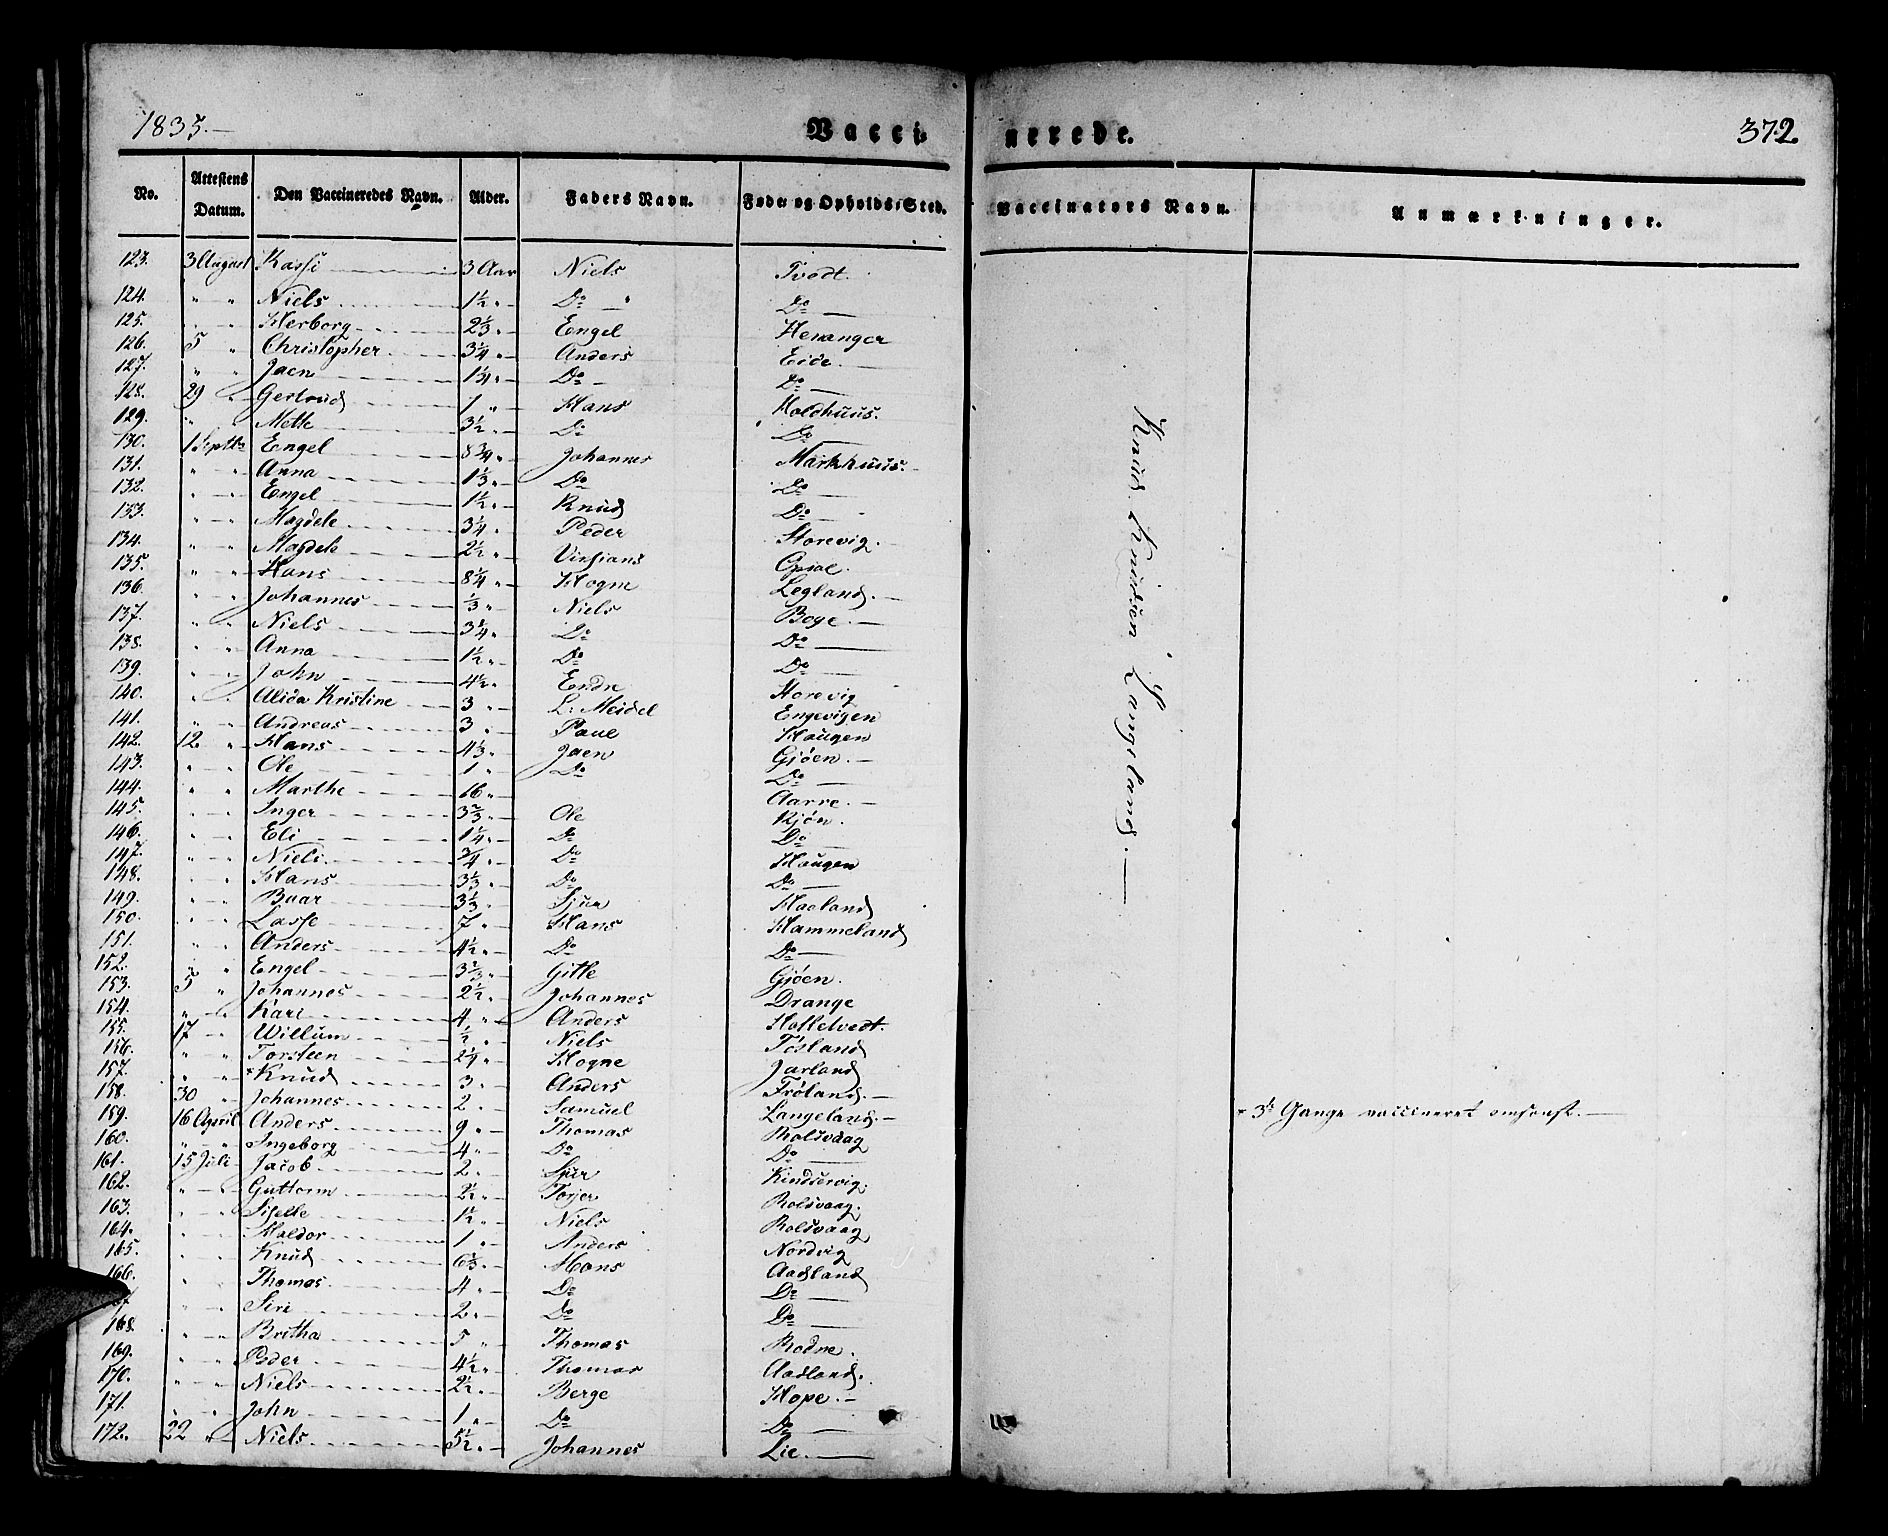 1835.—
Vacci-
nerede.
372.
No. Attestens Datum. Den Vaccineredes Navn. Alder. Faders Navn. Føde- og Opholds-Sted. Vaccinators Navn. Anmærkninger.
123. 3 August Kassi 3 Aar Niels Tvedt.
124. " " Niels 1½ " Do " Do
125. " " Herborg 2⅓ " Engel Heranger
126. 5 " Christopher 3¼ " Anders Eide.
127. " " Jaen 1¾ " Do Do
128. 29 " Gertrud 1 " Hans Holdhuus.
129. " Mette 3½ " Do Do
130. 1 Septbr Engel 8¾ " Johannes Markhuus.
131. " " Anna 1⅓ " Do Do
132. " " Engel 1½ " Knud Do
133. " " Magdele 3¼ " Peder Storevig.
134. " " Magdele 2½ " Opsal.
135. " " Hans 8¼ " Hogne Legland.
136. " " Johannes ⅓ " Niels Boge.
137. " " Niels 3¼ " Do Do
138. " " Anna 1½ " Do Do
139. " " John 4½ " Endre Storevig
140. " " Alida Kristine 3 " L. Meidel Engevigen
141. " " Andreas 3 " Paul Haugen
142. 12 " Hans 4⅓ " Jaen Gjøen.
143. " " Ole 1 " Do Do
144. " " Marthe 16 " Aarre.
145. " " Inger 3⅔ " Ole Kjøn.
146. " " Eli 1¼ " Do Do
147. " " Niels ¾ " Do Haugen
148. " " Hans 3⅓ " Do Do
149. " " Baar 3⅓ " Sjur Haaland
150. " " Lasse 7 " Hans Hammeland
151. " " Anders 4½ " Do Do
152. " " Engel 3⅔ " Gitle Gjøen.
153. 5 " Johannes 2½ " Johannes Drange
154. " " Kari 4 " Anders Holletvedt.
155. 17 " Willum ½ " Niels Tøsland
156. " " Torsteen 2¼ " Hogne Jarland
157. " " *Knud 3 " Anders Frøland.
158. 30 " Johannes 2 " Samuel Langeland.
159. 16 April Anders 9 " Thomas Rolsvaag
160. " " Ingeborg 4 " Do Do
161. 15 Juli Jacob 2 " Sjur Kindservig.
162. " " Guttorm 2½ " Torjer Rolsvaag.
163. " " Siselle 1½ " Niels Rolsvaag
164. " " Haldor 1 " Anders Nordvig
165. " " Knud 6⅔ " Mons Aadland
166. " Thomas 4 " Do Do
" " Siri 2 " Do Do
168. " " Britha 5 " Thomas Rodne.
169. " " Peder 4½ " Thomas Aadland.
170. " " Niels 2½ " Berge Hope.
171. " " John 1 " Do Do
172. 22 " Niels 5½ " Johannes Lie.
Knud Knudsen Langeland.—
* 3de Gange vaccineret omsonst.